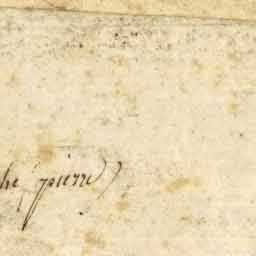 he (pierre)